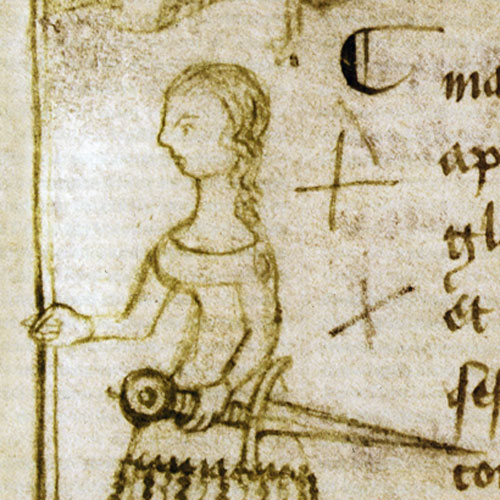 C ma
ap
gl
et
ses
co